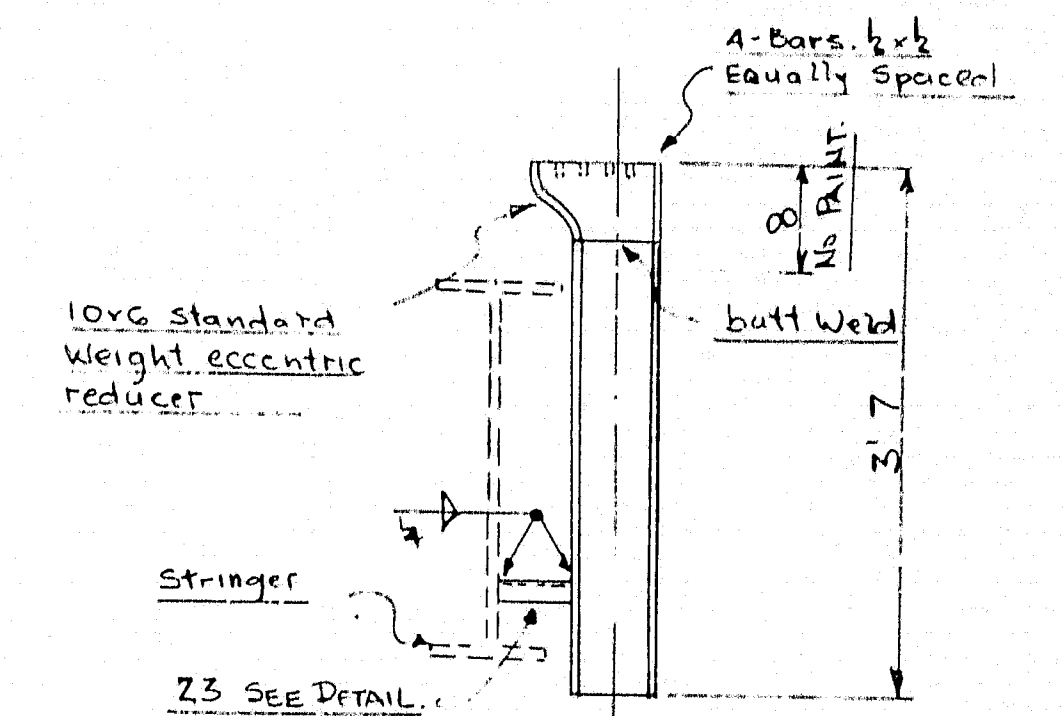 4-Bars. ½ x ½
Equally Spaced
8
No PAINT.
10x6 standard
weight eccentric
reducer
butt Weld
3' 7
¼
Stringer
23 SEE DETAIL.